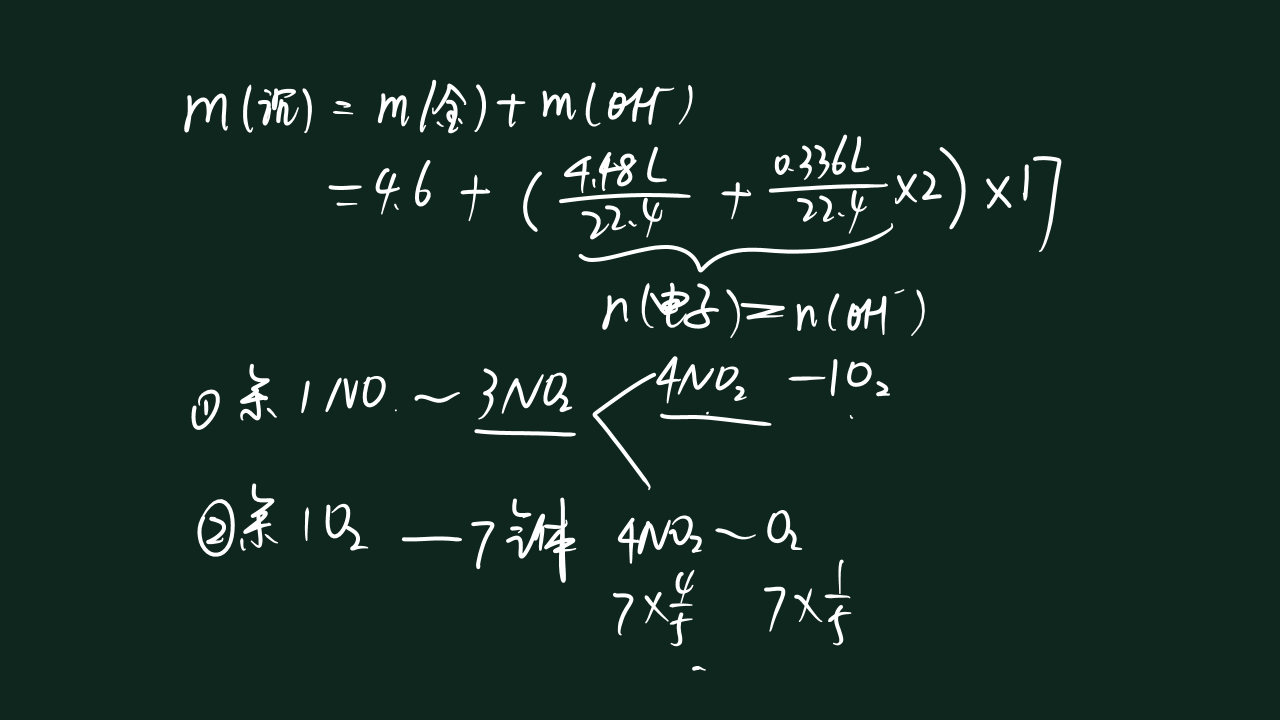 m(沉) = m(金) + m(OH⁻)
= 4.6 + (4.48L/22.4 + 0.336L/22.4 ×2) ×17
n(电子) = n(OH⁻)
① 余 1 NO ~ 3NO₂ < 4NO₂ — 1O₂
② 余 1O₂ — 7 体 4NO₂ ~ O₂
7×4/5 7×1/5